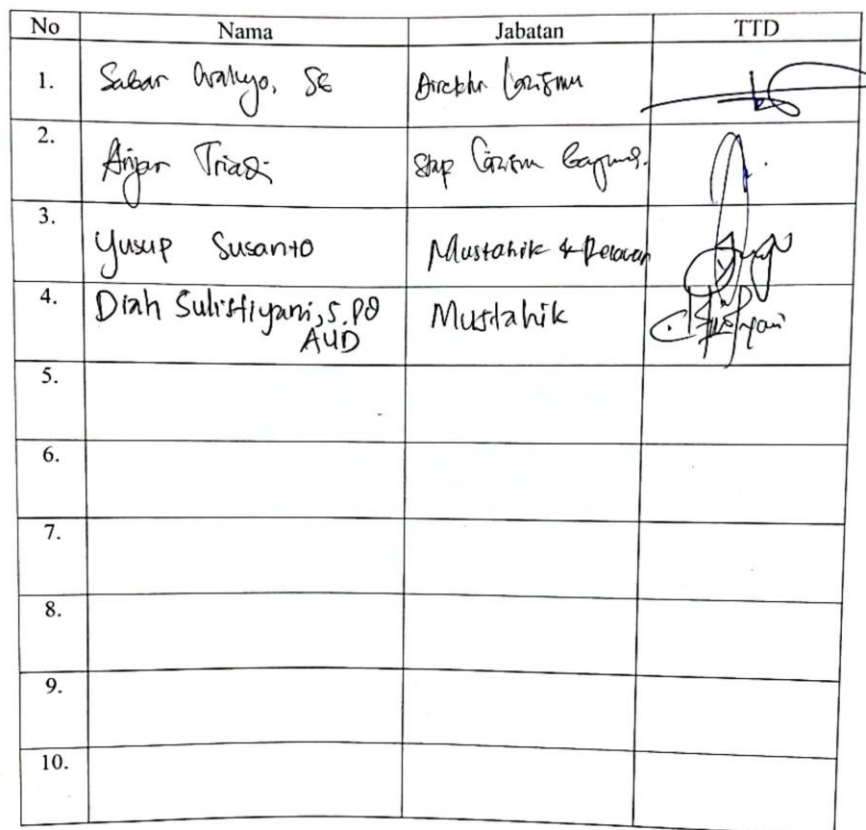 No Nama Jabatan TTD
1. Sabar Waluyo, SE Direktur Lazismu
2. Anjar Triadi Stap Lazismu
3. Yusup Susanto Mustahik & Relawan
4. Diah Sulistiyani, S.Pd Mustahik
AUD
5.
6.
7.
8.
9.
10.